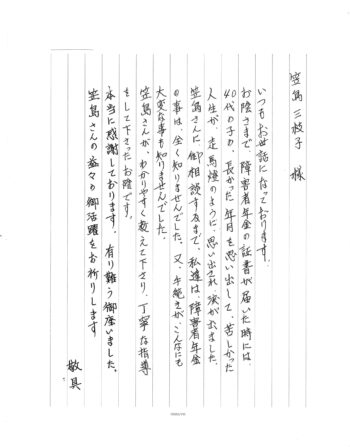 笠島三枝子 様
いつもお世話になっております。
お陰さまで、障害者年金の証書が届いた時には、
40代の子の、長かった年月を思い出して、苦しかった
人生が、走馬燈のように、思い出され、涙が出ました。
笠島さんに御相談するまで、私達は障害者年金
の事は全く知りませんでした。又、手続きが、こんなにも
大変な事も知りませんでした。
笠島さんが、わかりやすく教えて下さり、丁寧な指導
をして下さったお陰です。
本当に感謝しております。有り難う御座いました。
笠島さんの益々の御活躍をお祈りします
敬具